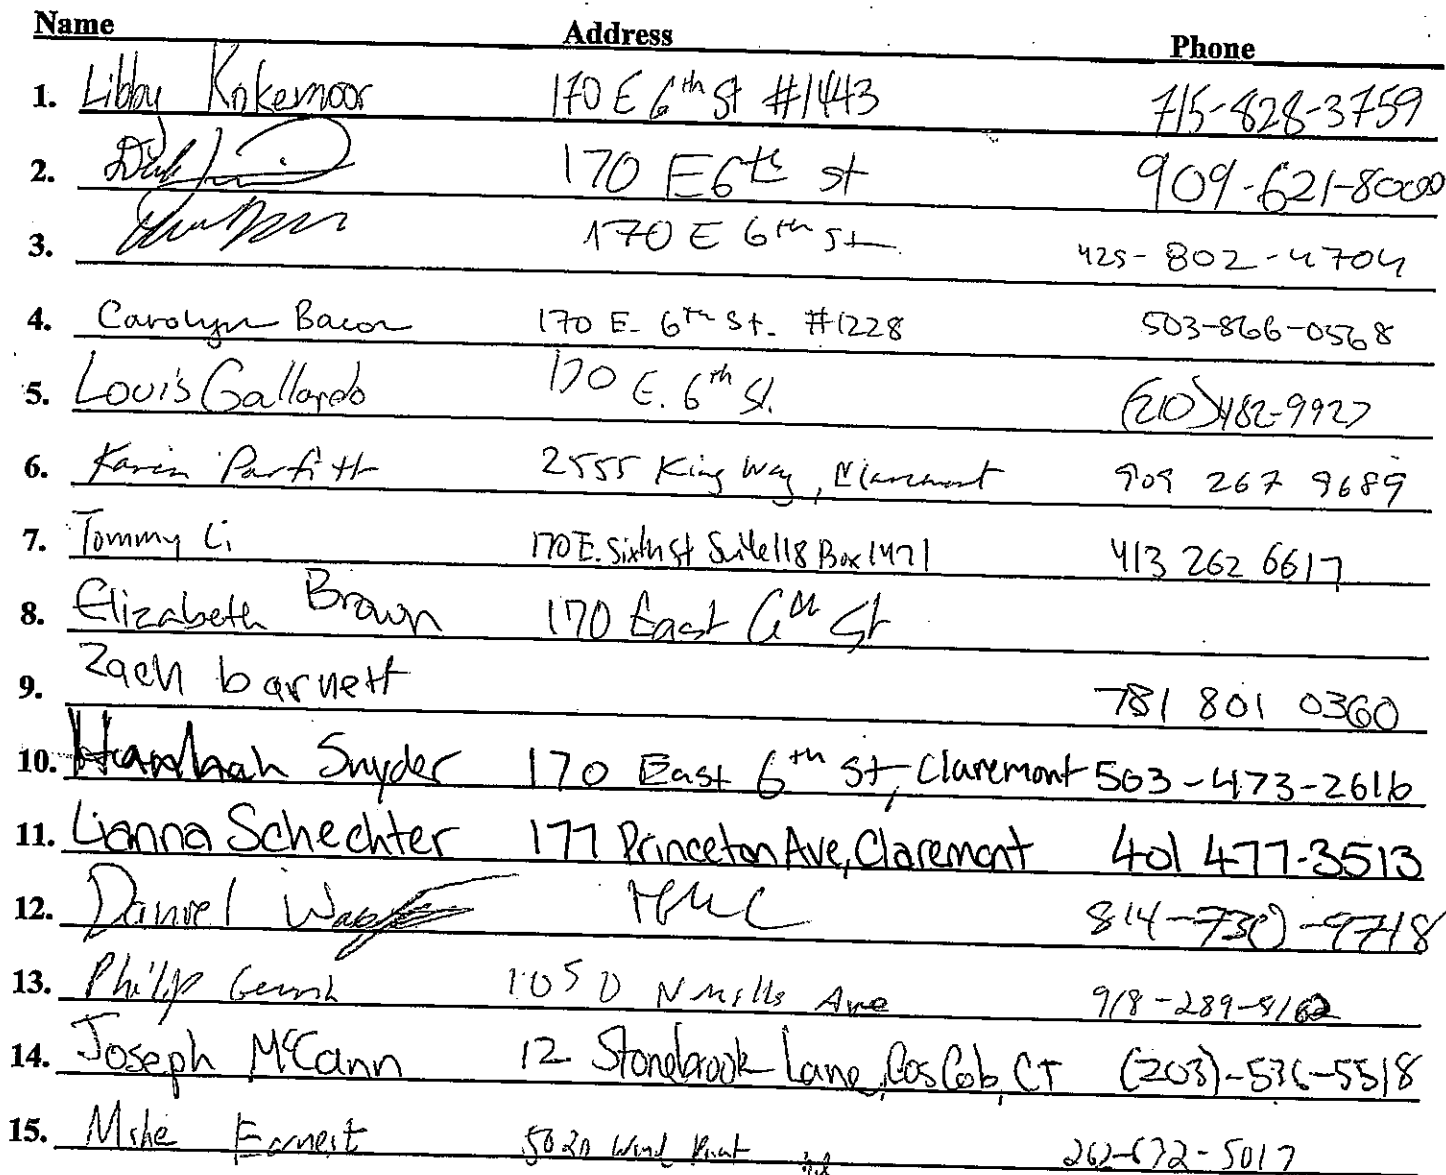 Name Address Phone
1. Libby Kokemoor 170 E 6th St #1443 715-828-3759
2. 170 E 6th st 909-621-8000
3. 170 E 6th St 425-802-4704
4. Carolyn Bacon 170 E. 6th St. #1228 503-866-0568
5. Louis Gallardo 170 E. 6th St. (210)482-9927
6. Karin Parfitt 2555 King Way, Claremont 909 267 9689
7. Tommy Li 170 E. Sixth St Suite 118 Box 1471 413 262 6617
8. Elizabeth Brown 170 East 6th St
9. Zach barnett 781 801 0360
10. Hannah Snyder 170 East 6th St, Claremont 503-473-2616
11. Lianna Schechter 177 Princeton Ave, Claremont 401 477-3513
12. Daniel 814-730-9718
13. Philip 1050 N Mills Ave 918-289-8162
14. Joseph McCann 12 Stonebrook Lane, Cos Cob, CT (203)-536-5518
15. Mike Earnest 5020 Wind Point 262-672-5017